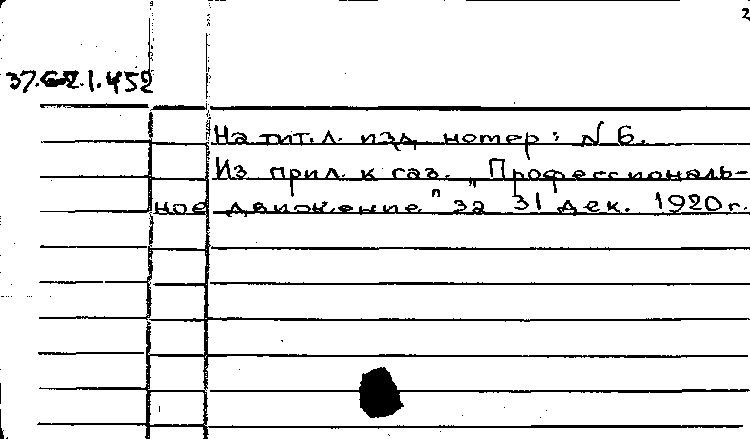 2
37.62.1.452
На тит. л. изд. номер: N 6.
Из прил. к газ. „Профессиональ-
ное движение" за 31 дек. 1920 г.